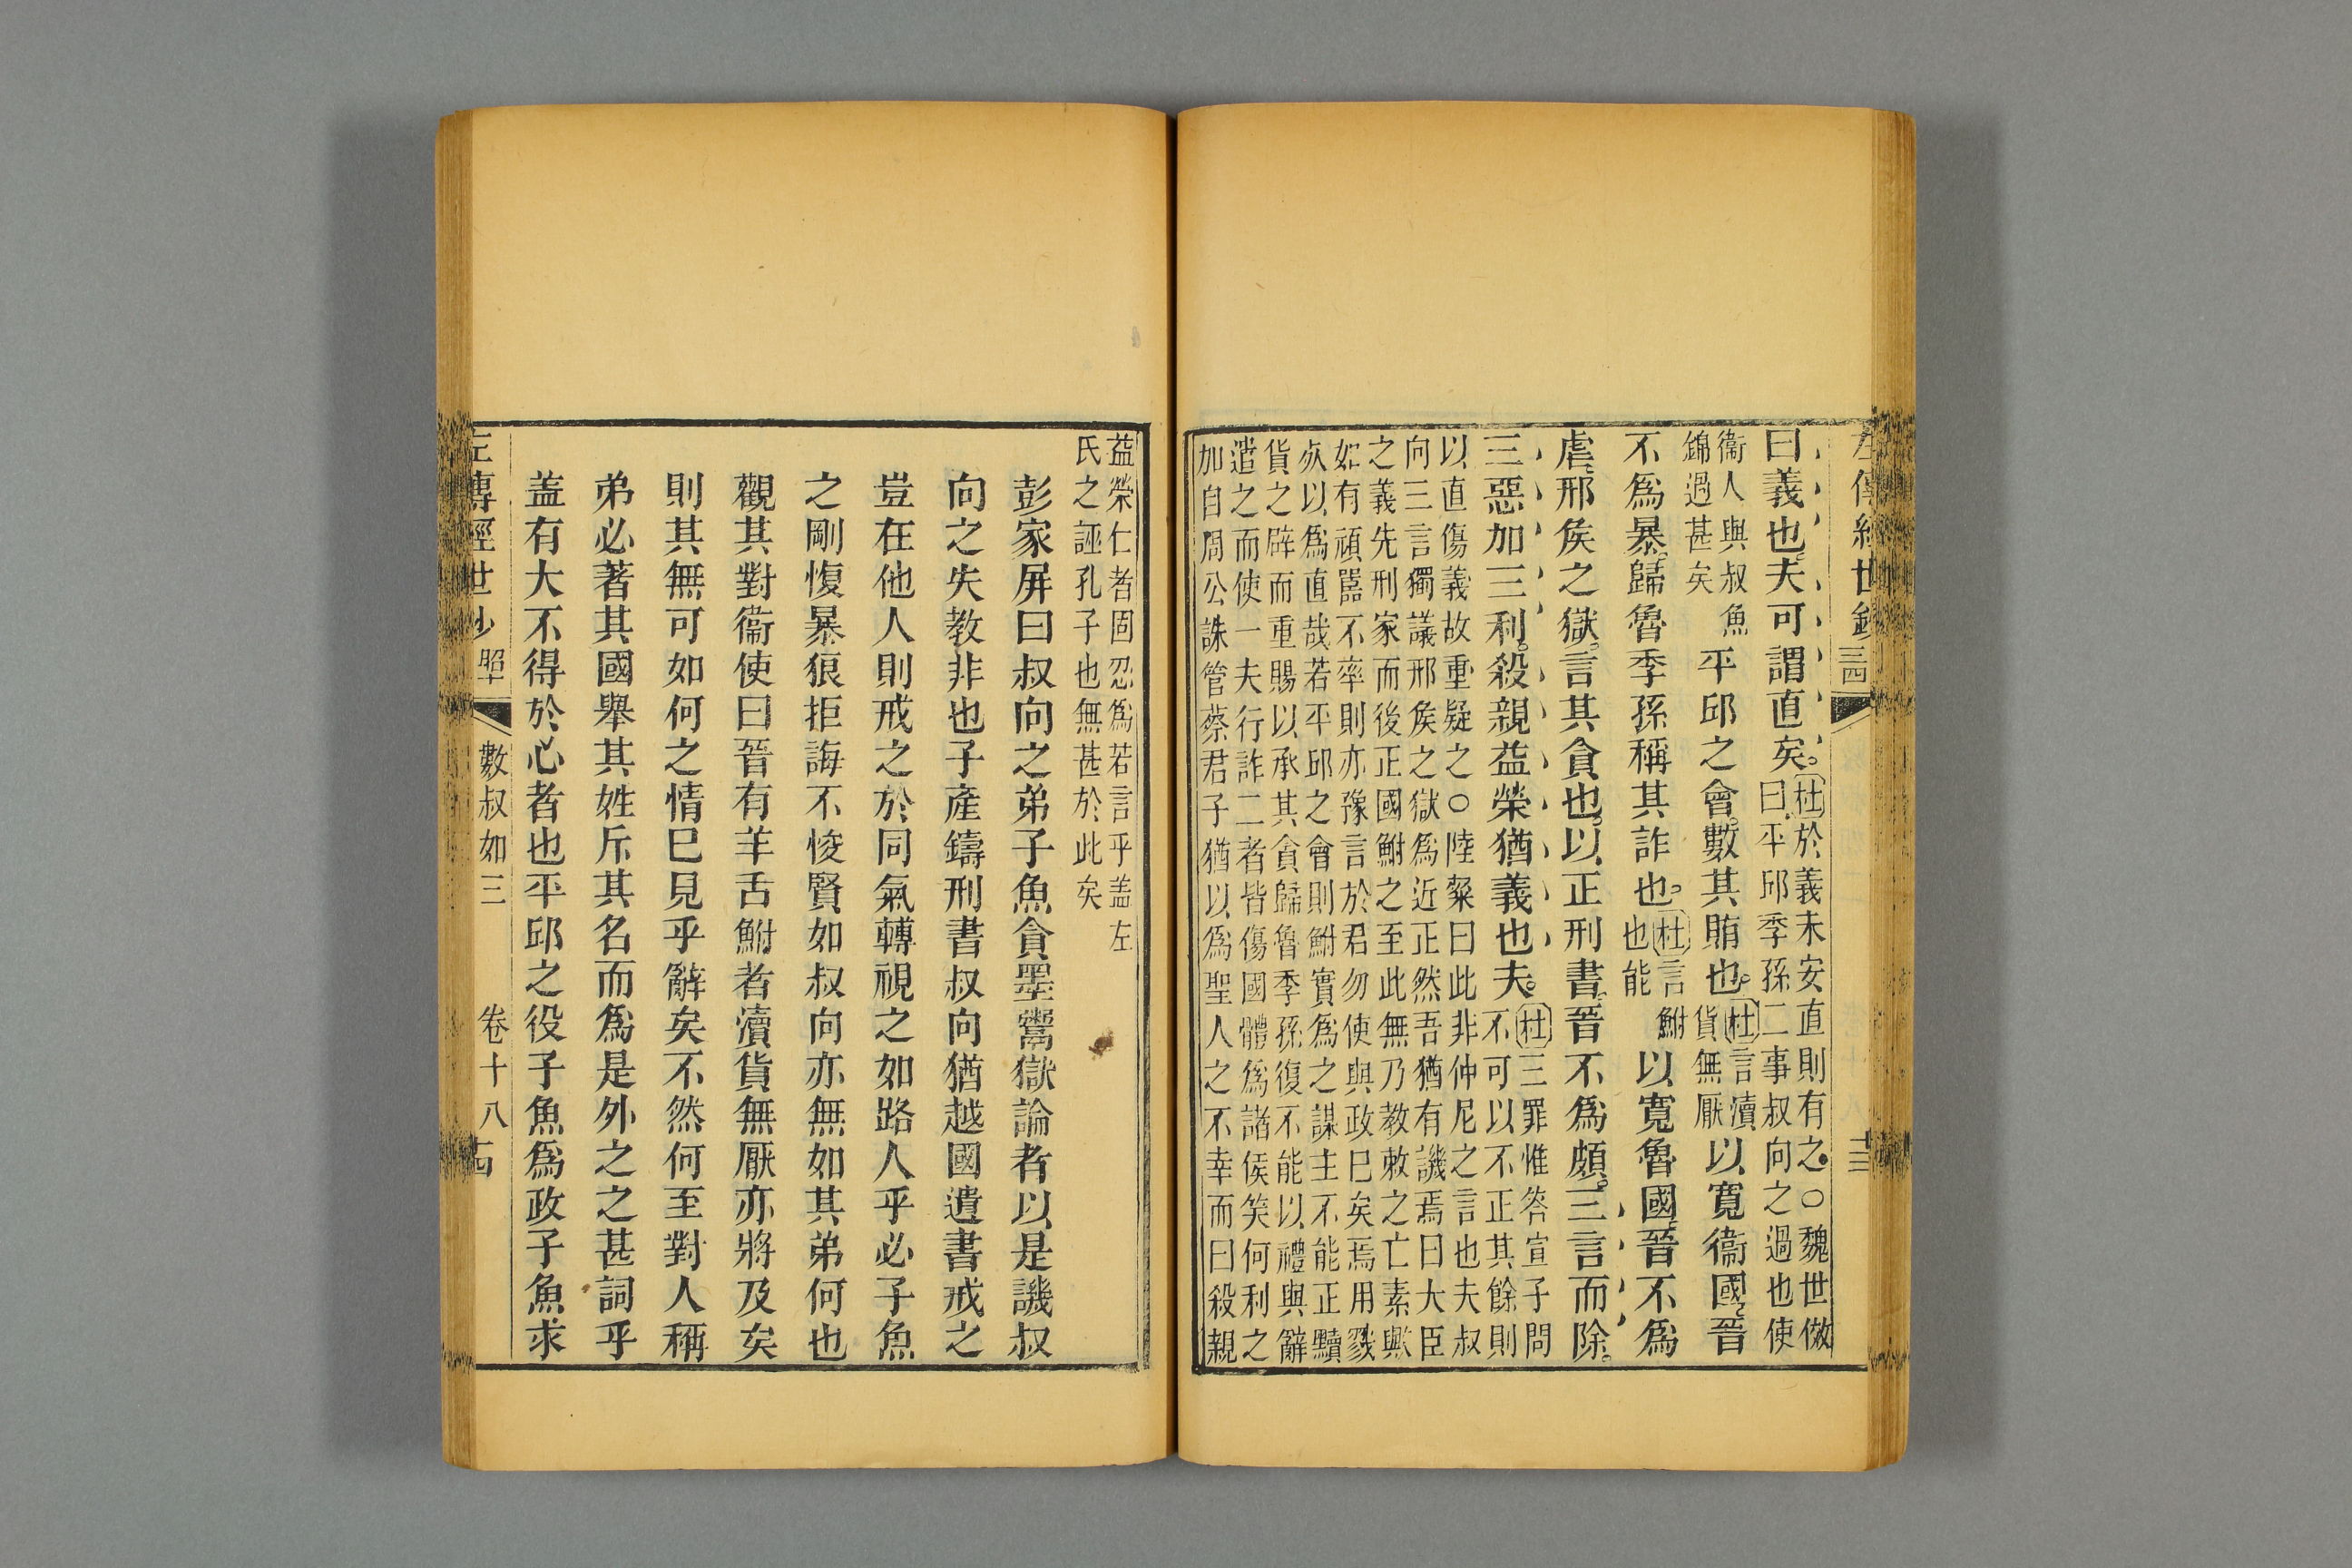 左傳經世鈔 三四 十三
曰義也夫可謂直矣杜於義未安直則有之○魏世傚
曰平邱季孫二事叔向之過也使
衞人與叔魚
錦過甚矣平邱之會數其賄也杜言瀆
貨無厭以寬衞國晉
不爲暴歸魯季孫稱其詐也杜言鮒
也能以寬魯國晉不爲
虐邢侯之獄言其貪也以正刑書晉不爲頗三言而除
三惡加三利殺親益榮猶義也夫杜三罪惟答宣子問
不可以不正其餘則
以直傷義故重疑之○陸粲曰此非仲尼之言也夫叔
向三言獨議邢侯之獄爲近正然吾猶有譏焉曰大臣
之義先刑家而後正國鮒之至此無乃教敕之亡素歟
如有頑嚚不率則亦豫言於君勿使與政巳矣焉用戮
以爲直哉若平邱之會則鮒實爲之謀主不能正黷
貨之辟而重賜以承其貪歸魯季孫復不能以禮與辭
遣之而使一夫行詐二者皆傷國體爲諸侯笑何利之
加自周公誅管蔡君子猶以爲聖人之不幸而曰殺親
益榮仁者固忍爲若言乎盖左
氏之誣孔子也無甚於此矣
彭家屏曰叔向之弟子魚貪墨鬻獄論者以是譏叔
向之失教非也子產鑄刑書叔向猶越國遺書戒之
豈在他人則戒之於同氣轉視之如路人乎必子魚
之剛愎暴狠拒誨不悛賢如叔向亦無如其弟何也
觀其對衞使曰晉有羊舌鮒者瀆貨無厭亦將及矣
則其無可如何之情巳見乎辭矣不然何至對人稱
弟必著其國舉其姓斥其名而爲是外之之甚詞乎
盖有大不得於心者也平邱之役子魚爲政子魚求
左傳經世鈔 昭 數叔如三 卷十八 十四